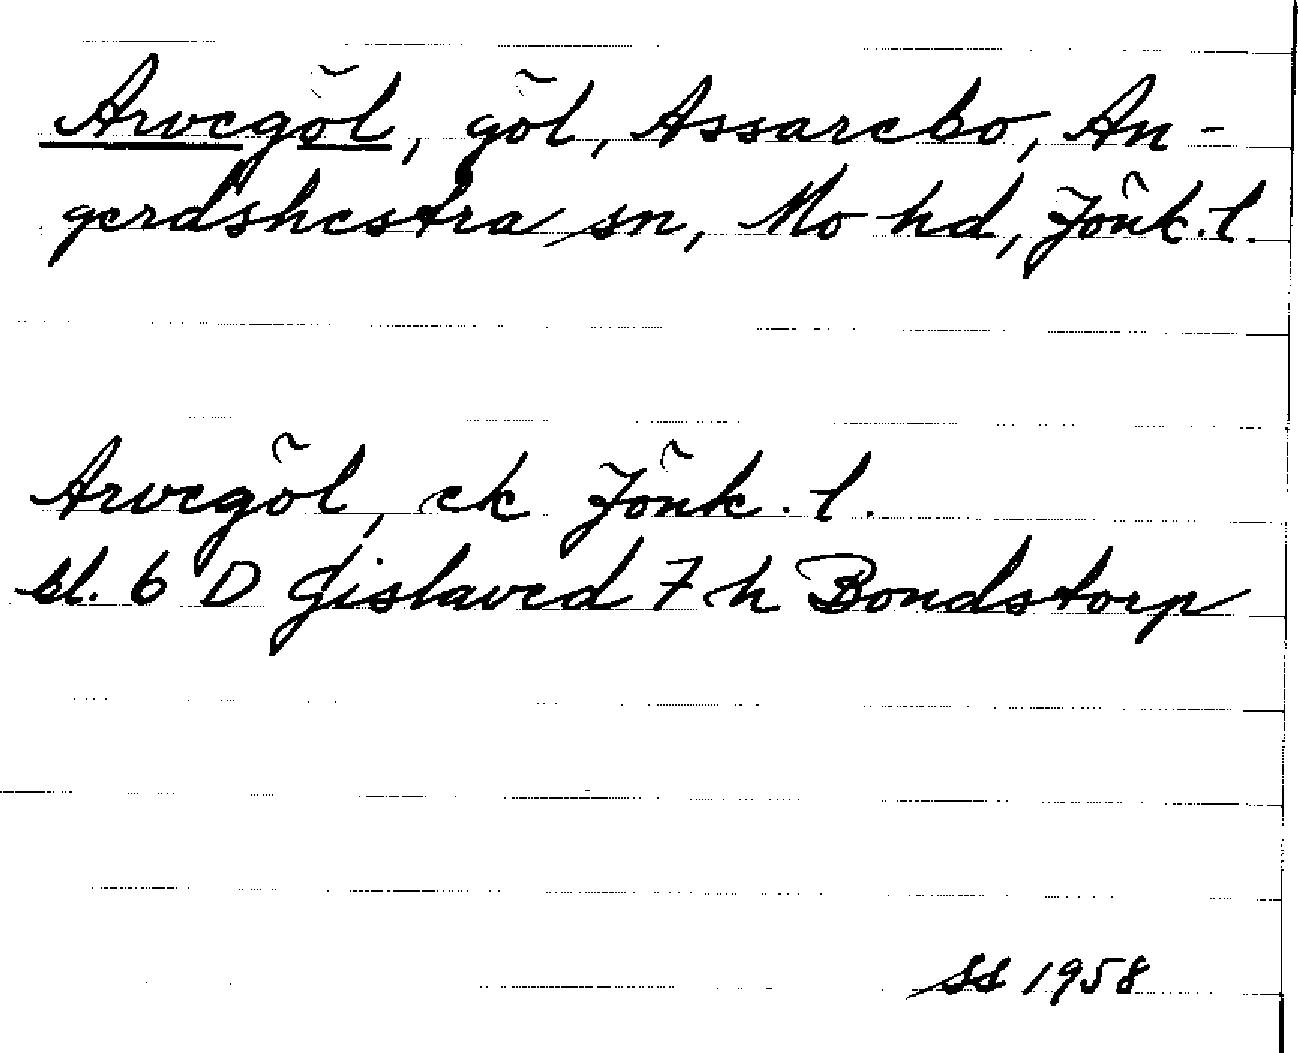 Arvegöl, göl, Assarebo, An-
gerdshestra sn, Mo hd, Jönk. l.
Arvegöl, ek Jönk. l.
bl. 6 D Gislaved 7 h Bondstorp
SS 1958